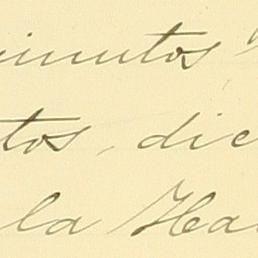 minutos
tos, dic
la Ha